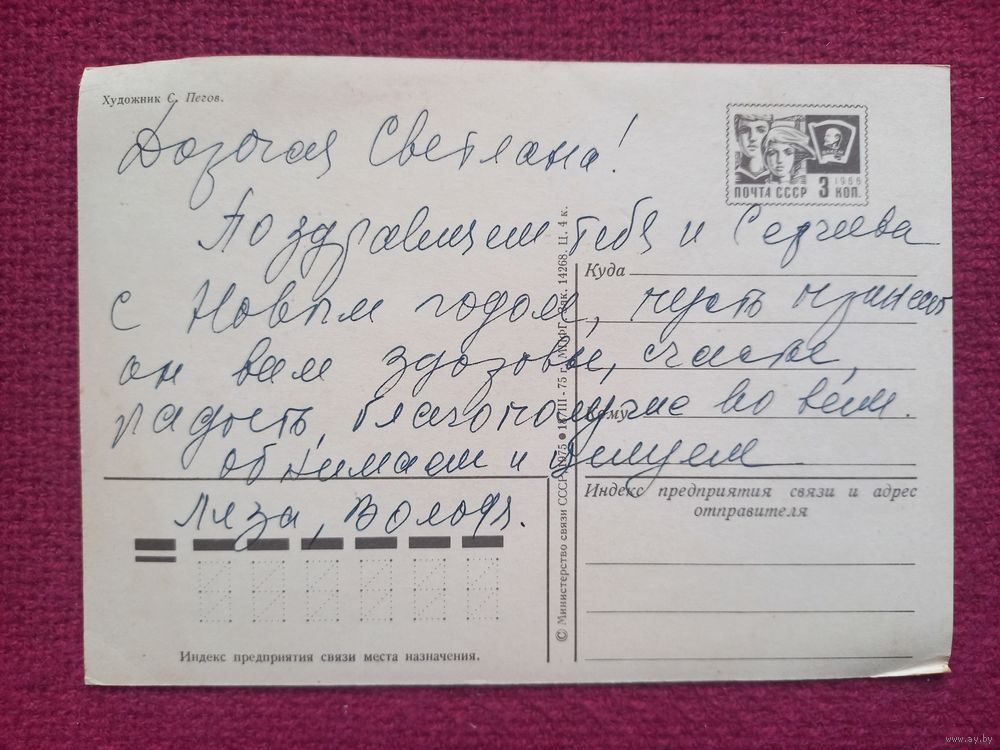 Художник С. Пегов.
Дорогая Светлана!
Поздравляем тебя и Сергеева
с Новым годом, пусть принесет
он вам здоровье, счастье,
радость, благополучие во всем.
обнимаем и целуем
Лиза, Володя.
ВЛКСМ
1966
ПОЧТА СССР 3 КОП.
Куда
Кому
Индекс предприятия связи и адрес
отправителя
Индекс предприятия связи места назначения.
© Министерство связи СССР, 1975 ● 18/III - 75 г. МПФГ. Зак. 14268. Ц. 4 к.
www.ay.by